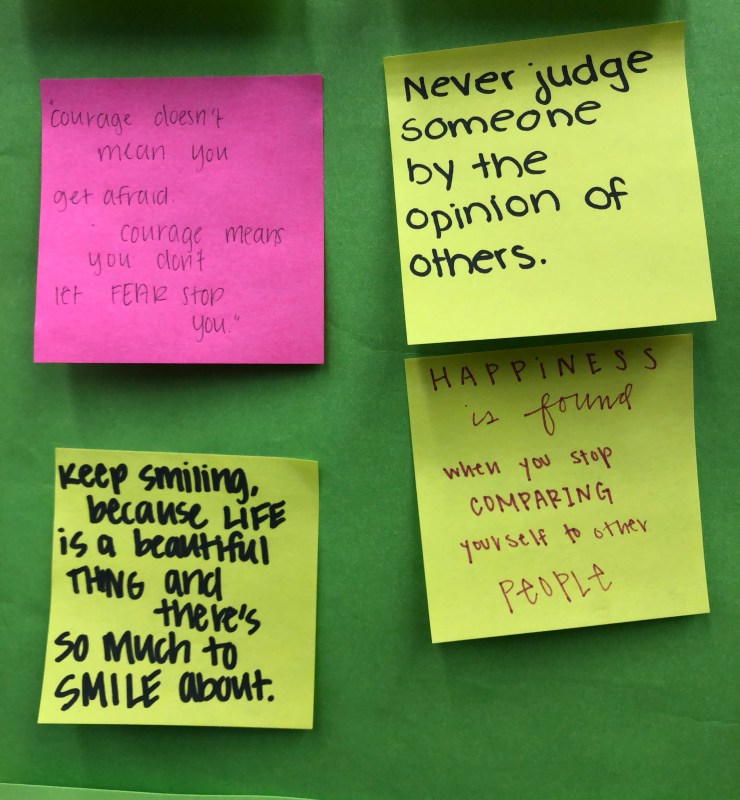 "courage doesn't
mean you
get afraid.
courage means
you don't
let FEAR stop
you."
Never judge
someone
by the
opinion of
others.
HAPPiNESS
is found
when you stop
COMPARING
yourself to other
PEOPLE
Keep smiling,
because LIFE
is a beautiful
THING and
there's
so Much to
SMILE about.